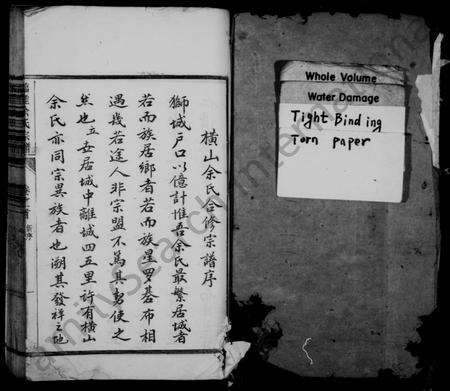 橫山余氏合修宗譜序
獅城戶口以億計惟吾余氏最繁居城者
若而族居鄉者若而族星罗基布相
遇幾若途人非宗盟不為其勢使之
然也立安居城中離城四五里許有橫山
余氏亦同宗異族者也溯其發祥之地
Whole Volume
Water Damage
Tight Binding
Torn paper